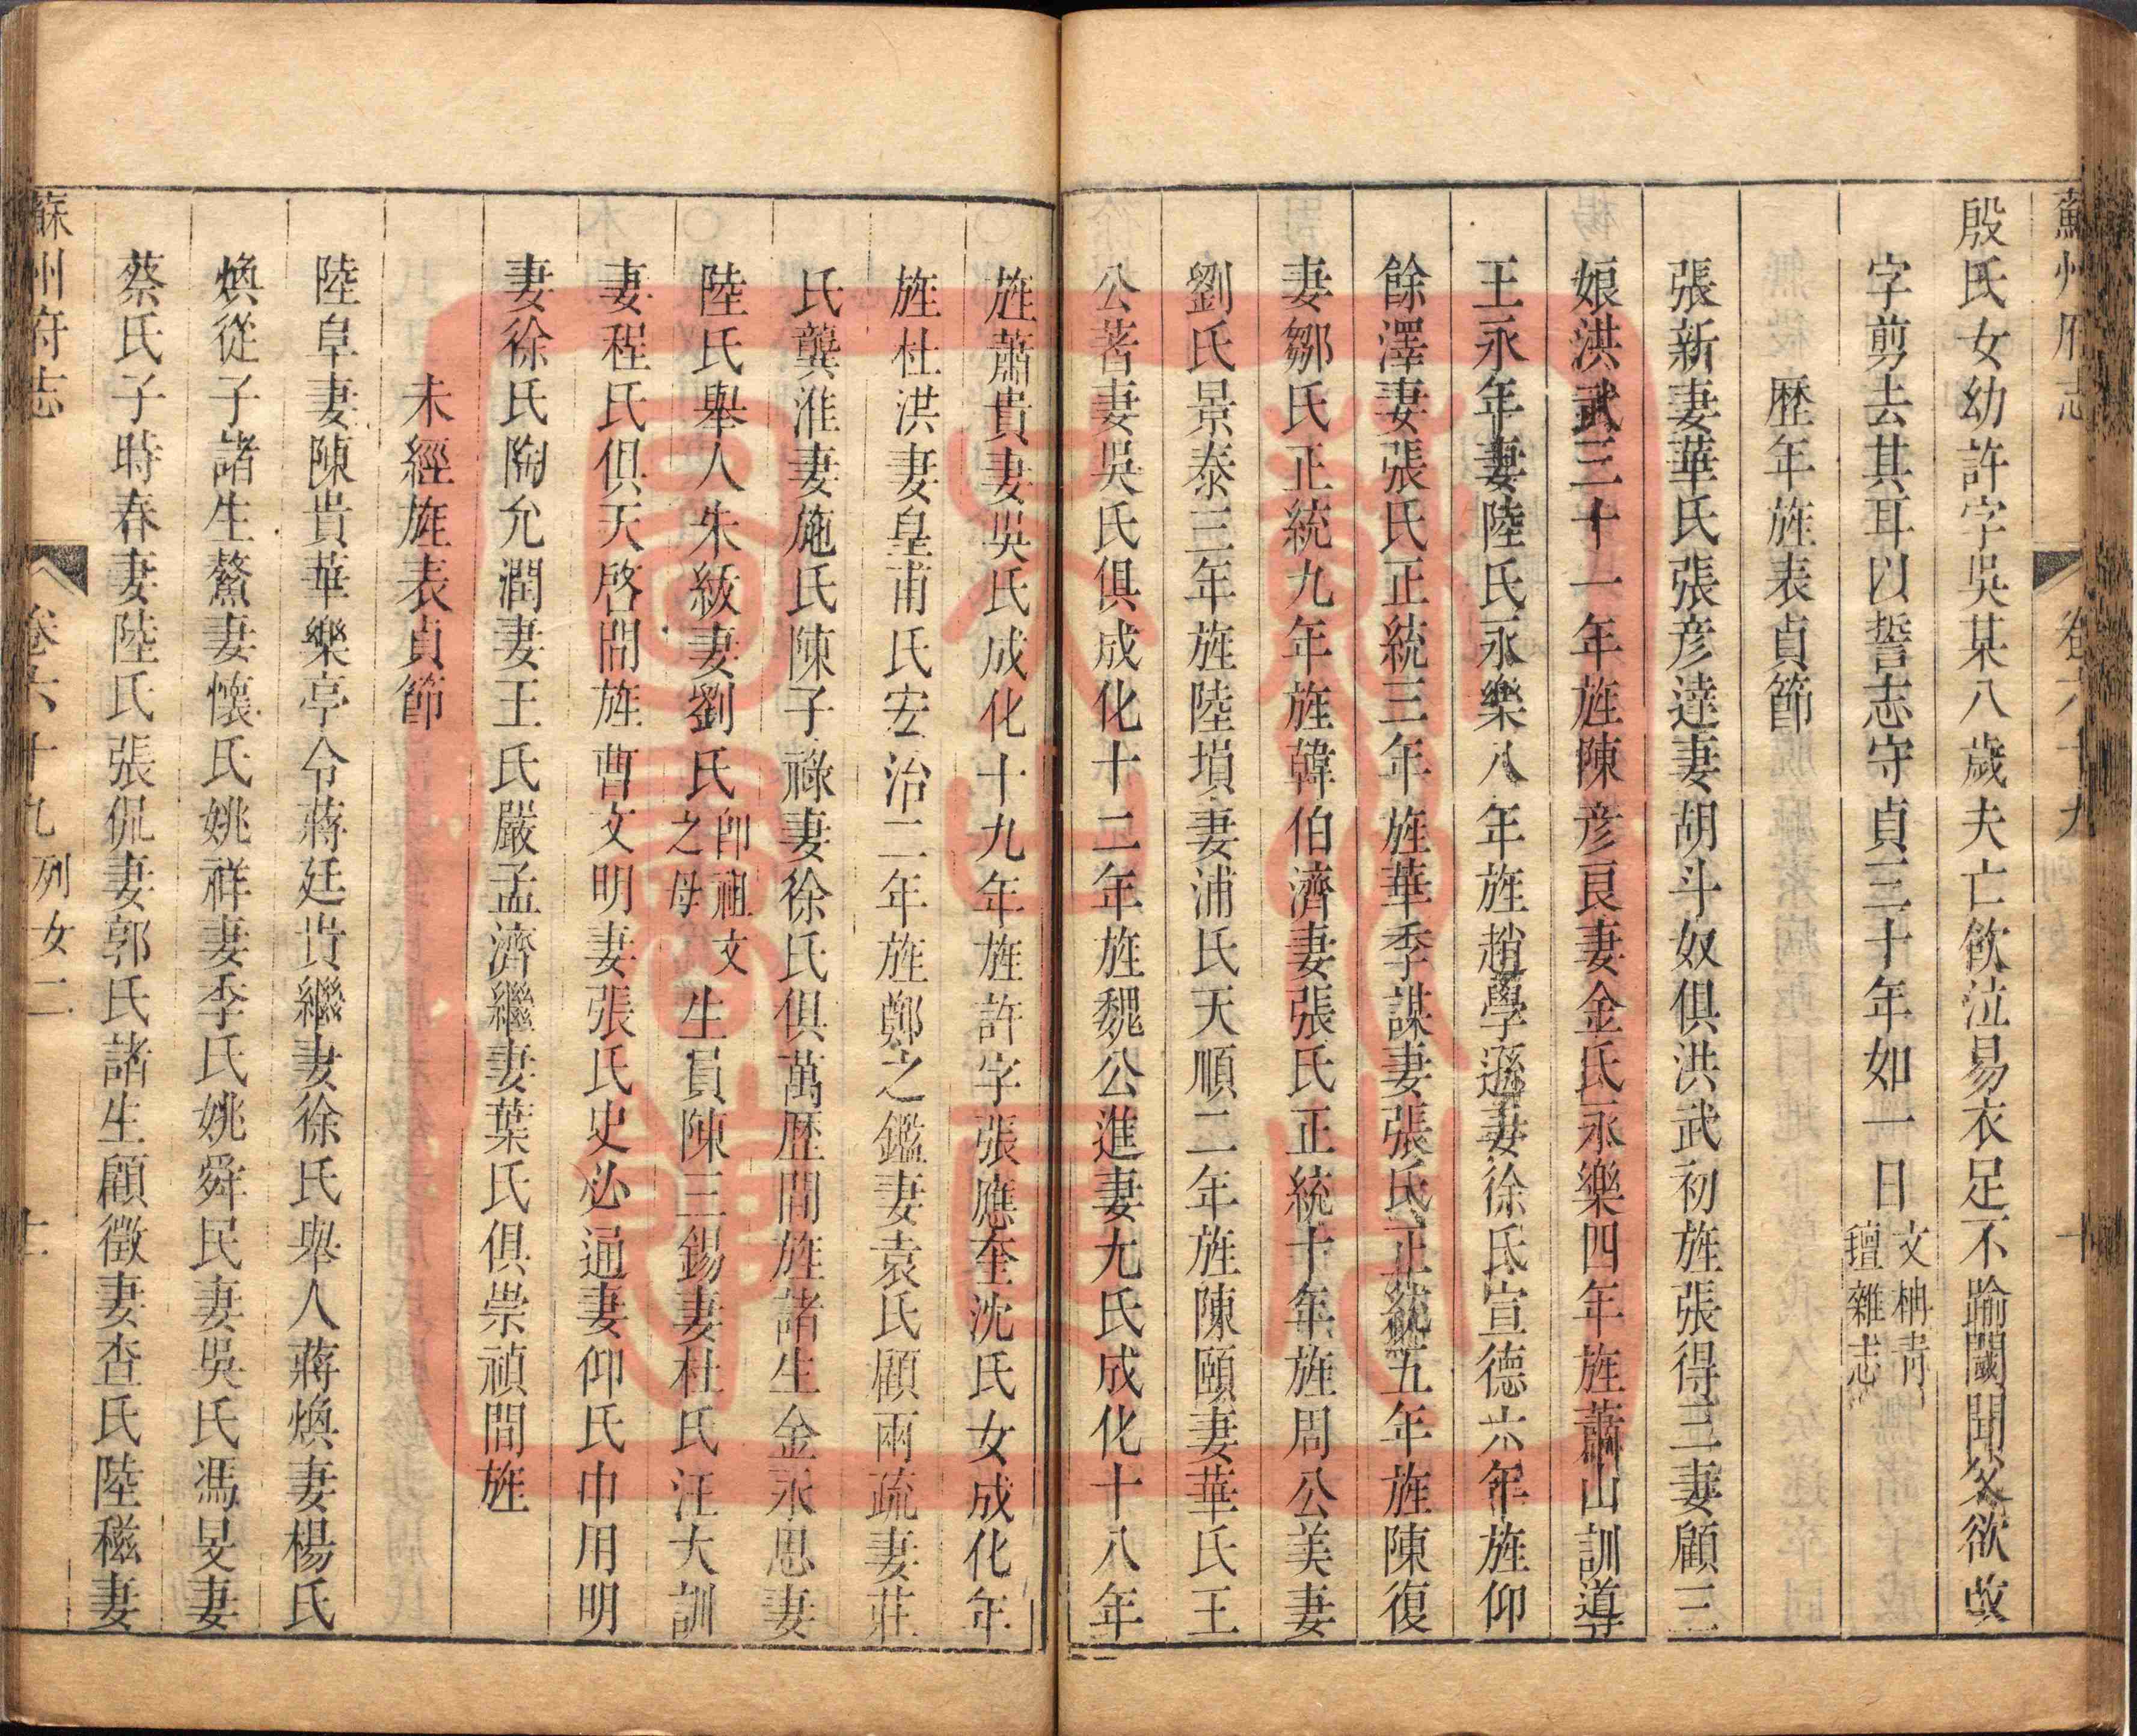 蘇州府志 卷六十九 十
殷氏女幼許字吳某八歲夫亡飲泣易衣足不踰閾聞父欲改
字剪去其耳以誓志守貞三十年如一日文柟青
瓊雜志
歷年旌表貞節
張新妻華氏張彦達妻胡斗奴俱洪武初旌張得三妻顧三
娘洪武三十一年旌陳彦良妻金氏永樂四年旌蕭山訓導
王永年妻陸氏永樂八年旌趙學遜妻徐氏宣德六年旌仰
餘澤妻張氏正統三年旌華季謀妻張氏正統五年旌陳復
妻鄒氏正統九年旌韓伯濟妻張氏正統十年旌周公美妻
劉氏景泰三年旌陸塤妻浦氏天順二年旌陳頤妻華氏王
公著妻吳氏俱成化十二年旌魏公進妻尤氏成化十八年
旌蕭貴妻吳氏成化十九年旌許字張應奎沈氏女成化年
旌杜洪妻皇甫氏宏治二年旌鄭之鑑妻袁氏顧兩疏妻莊
氏龔淮妻施氏陳子祿妻徐氏俱萬歷間旌諸生金永思妻
陸氏舉人朱紱妻劉氏卽祖文
之母生員陳三錫妻杜氏汪大訓
妻程氏俱天啓間旌曹文明妻張氏史必通妻仰氏巾用明
妻徐氏陶允潤妻王氏嚴孟濟繼妻葉氏俱崇禎間旌
未經旌表貞節
陸阜妻陳貴華樂亭令蔣廷貴繼妻徐氏舉人蔣煥妻楊氏
煥從子諸生鰲妻懷氏姚祥妻李氏姚舜民妻吳氏馮旻妻
蔡氏子時春妻陸氏張侃妻郭氏諸生顧徵妻查氏陸稵妻
蘇州府志 卷六十九 列女二 十一